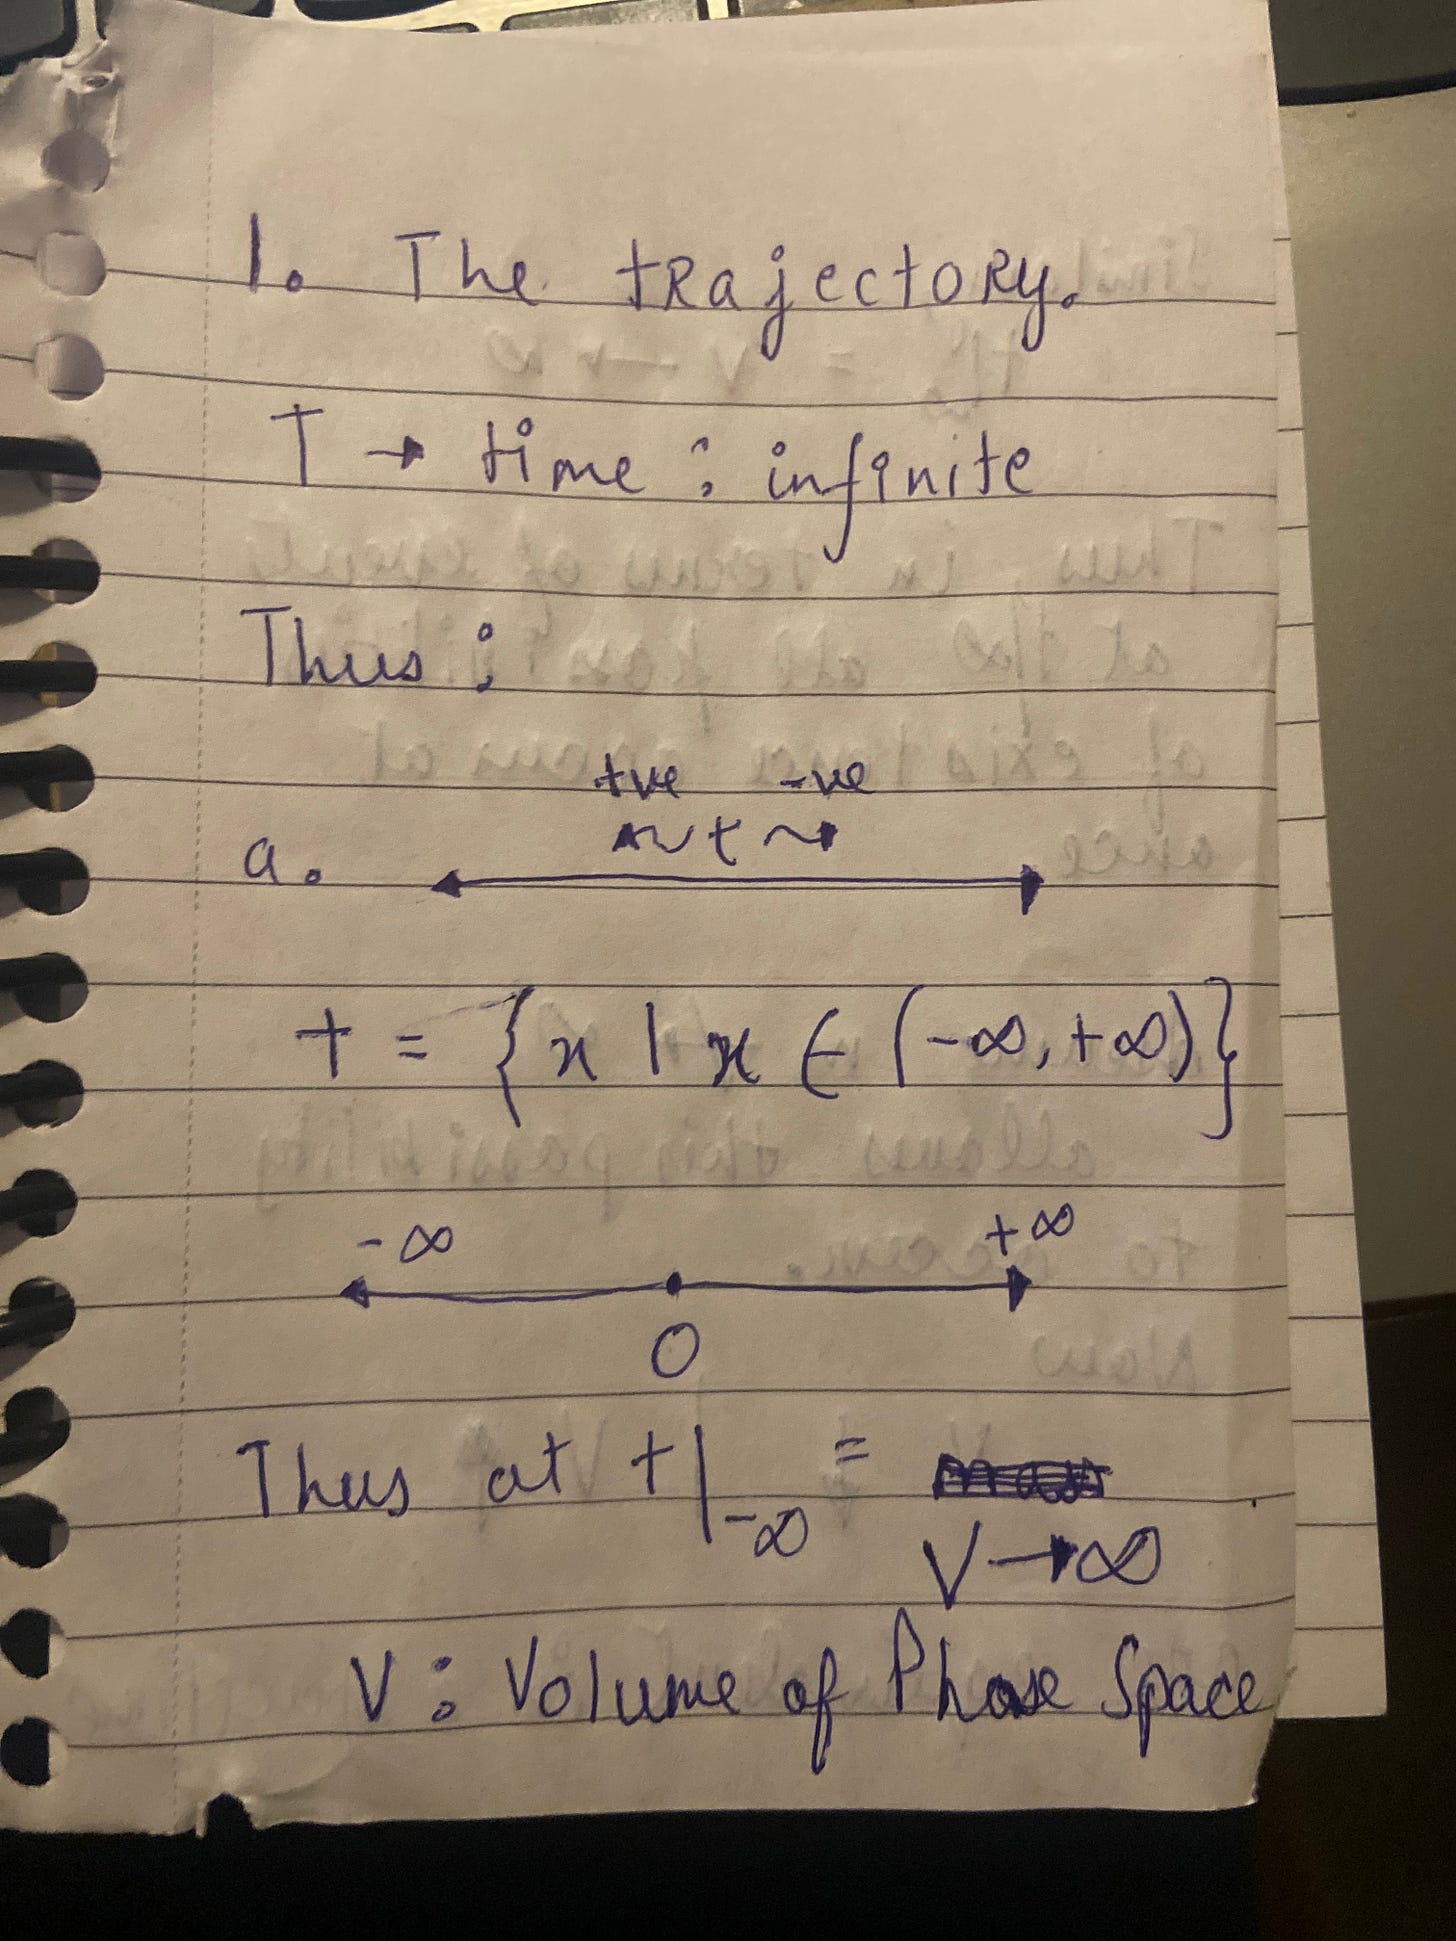 1. The trajectory.
T → time : infinite
Thus :
+ve -ve
a. ← t →
t = {x | x ∈ (-∞, +∞)}
-∞ +∞
0
Thus at t|-∞ =
V → ∞
V : Volume of Phase Space